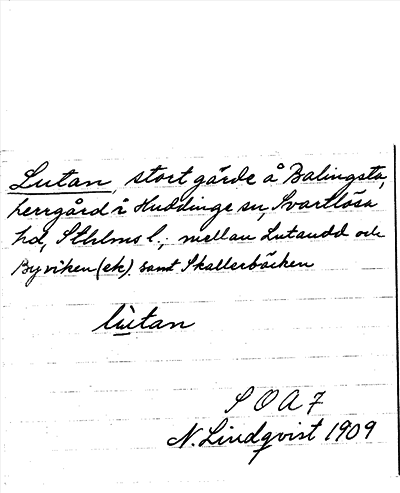 Lutan, stort gärde å Balingsta,
herrgård i Huddinge sn, Svartlösa
hd, Sthlms l.; mellan Lutaudd och
Byviken (ek). samt Skallerbäcken
lùtan
S O A 7
N. Lindqvist 1909